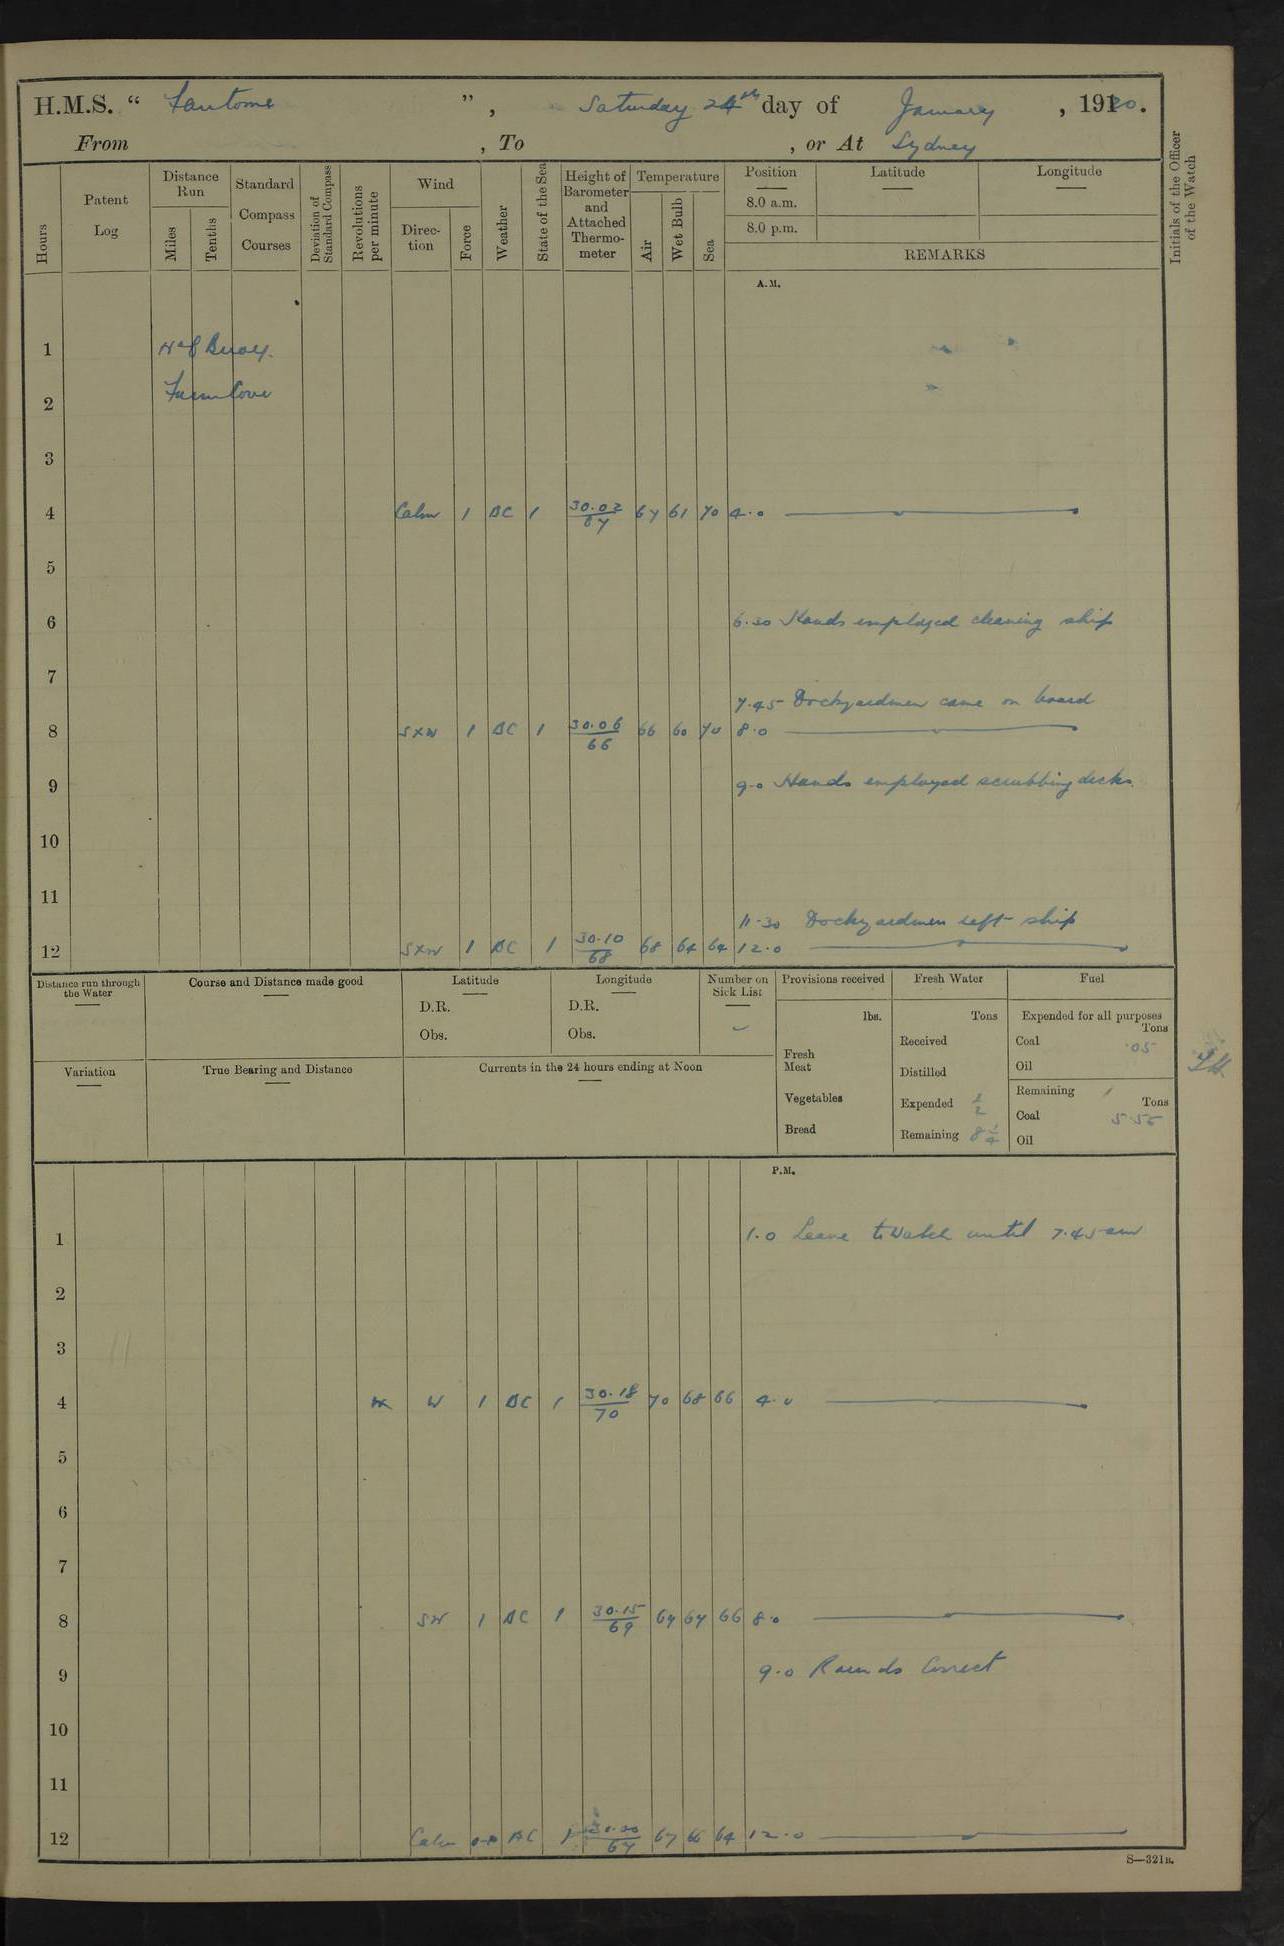 H.M.S. “ Fantome ”, Saturday 24th day of January , 1920.
From , To , or At Sydney
Hours
Patent Log
Distance Run
Miles
Tenths
Standard Compass Courses
Deviation of Standard Compass
Revolutions per minute
Wind
Direc-tion
Force
Weather
State of the Sea
Height of Barometer and Attached Thermo-meter
Temperature
Air
Wet Bulb
Sea
Position
8.0 a.m.
8.0 p.m.
Latitude
Longitude
REMARKS
Initials of the Officer of the Watch
A.M.
1 No 8 Buoy.
2 Farm Cove
3
4 Calm 1 BC 1 30.02/67 67 61 70 4.0
5
6 6.30 Hands employed cleaning ship
7
7.45 Dockyardmen came on board
8 SxW 1 BC 1 30.06/66 66 60 70 8.0
9 9.0 Hands employed scrubbing decks.
10
11
11.30 Dockyardmen left ship
12 SxW 1 BC 1 30.10/68 68 64 64 12.0
Distance run through the Water
Course and Distance made good
Latitude
D.R.
Obs.
Longitude
D.R.
Obs.
Number on Sick List
Provisions received
lbs.
Fresh Meat
Vegetables
Bread
Fresh Water
Tons
Received
Distilled
Expended 1/2
Remaining 8 1/4
Fuel
Expended for all purposes
Tons
Coal .05
Oil
Remaining
Tons
Coal 5.55
Oil
Variation
True Bearing and Distance
Currents in the 24 hours ending at Noon
P.M.
1 1.0 Leave to Watch until 7.45 am
2
3
4 W 1 BC 1 30.18/70 70 68 66 4.0
5
6
7
8 SW 1 BC 1 30.15/69 67 67 66 8.0
9 9.0 Rounds Correct
10
11
12 Calm 0-1 BC 1 /67 67 66 64 12.0
S—321B.